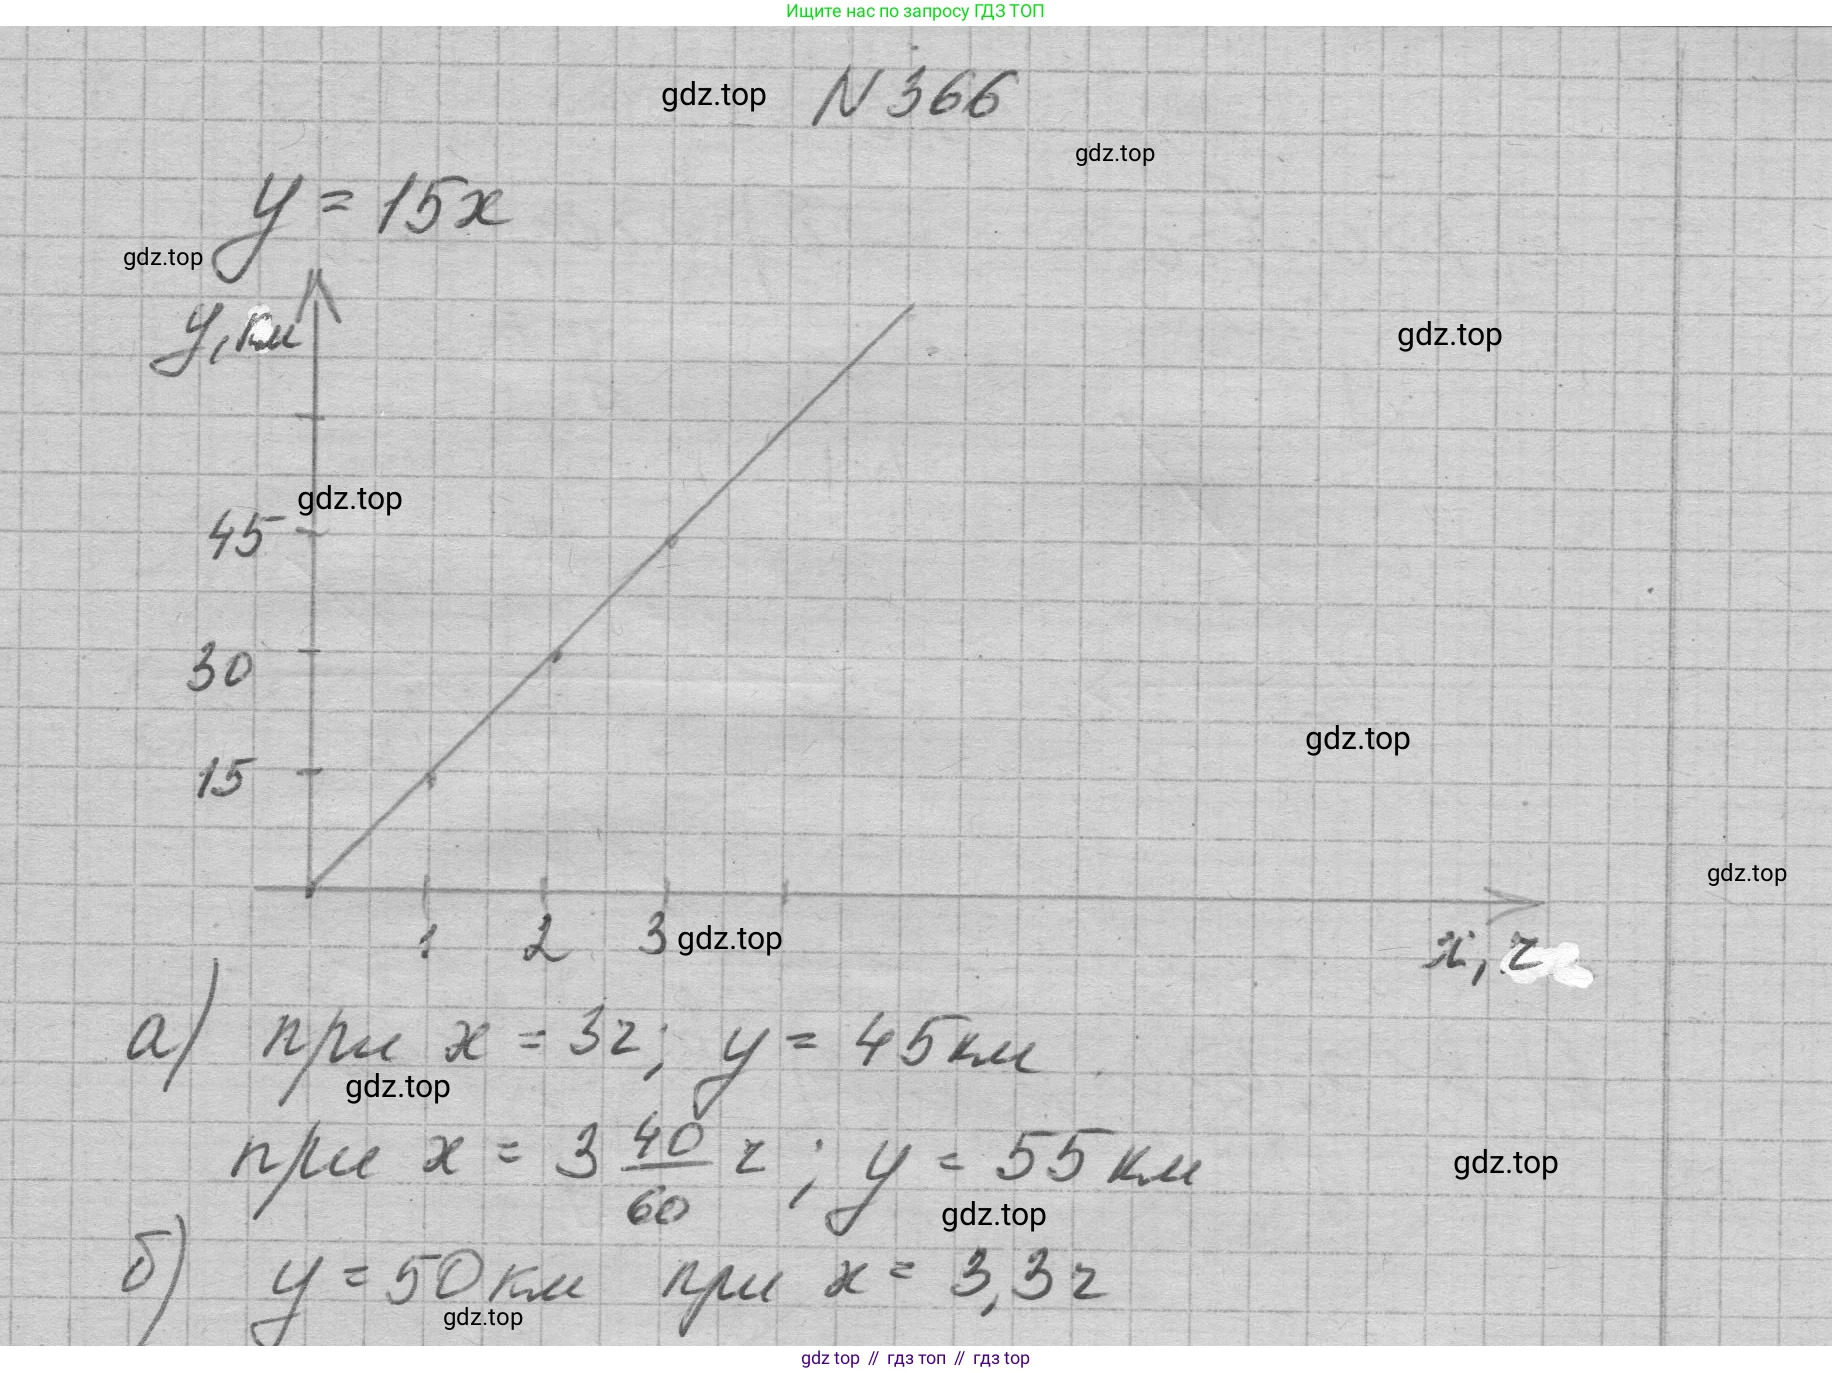 Ищите нас по запросу ГДЗ ТОП
gdz.top N 366
gdz.top
y = 15x
gdz.top
y, км
gdz.top
gdz.top
45
30
gdz.top
15
gdz.top
1 2 3 gdz.top
x, ч
а) при x = 3ч; y = 45км
gdz.top
при x = 3 40/60 ч; y = 55 км
gdz.top
gdz.top
б) y = 50км при x = 3,3ч
gdz.top
gdz top // гдз топ // гдз top